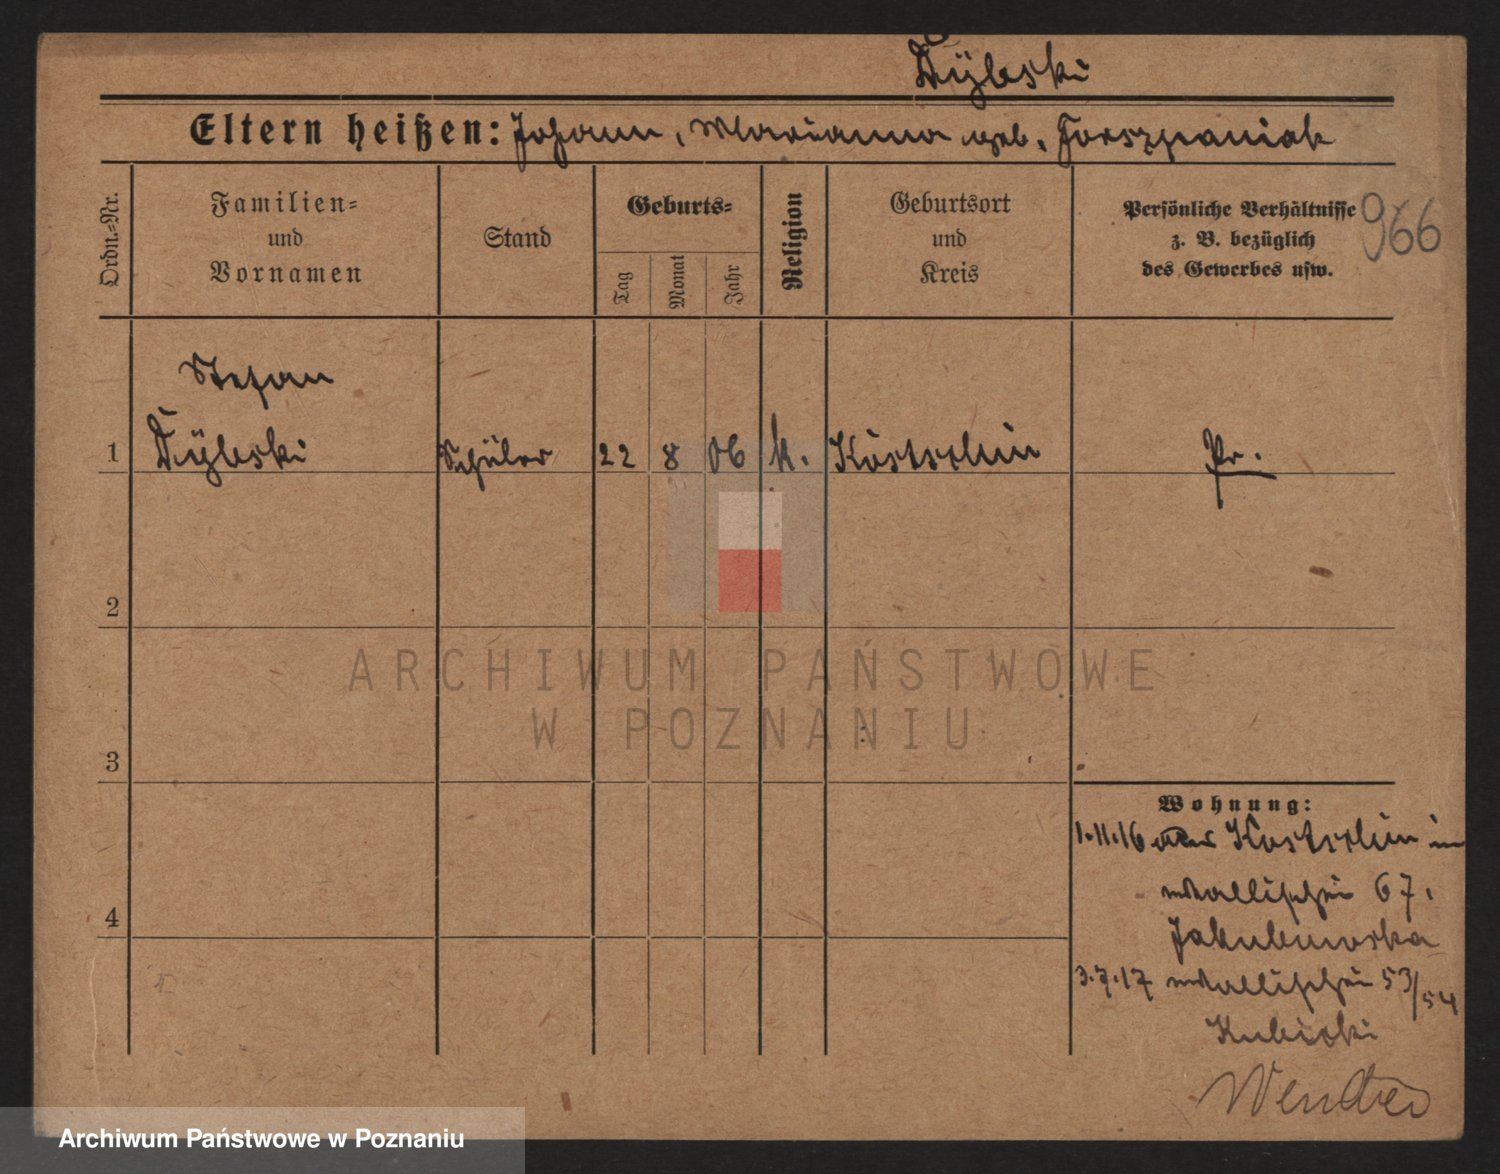 Dÿbski
Eltern heißen: Johann, Marianna geb. Forszpaniak
Ordn.=Nr.
Familien=
und
Vornamen
Stand
Geburts=
Tag
Monat
Jahr
Religion
Geburtsort
und
Kreis
Persönliche Verhältnisse
z. B. bezüglich
des Gewerbes usw.
966
Stefan
1 Schüler 22 8 06 k. Pr.
2
3
4
Wohnung:
1.11.16 aus in
Wallischei 67.
Jakubowska
3.7.17 Wallischei 53/54
Kubicki
ARCHIWUM PAŃSTWOWE
W POZNANIU
Archiwum Państwowe w Poznaniu